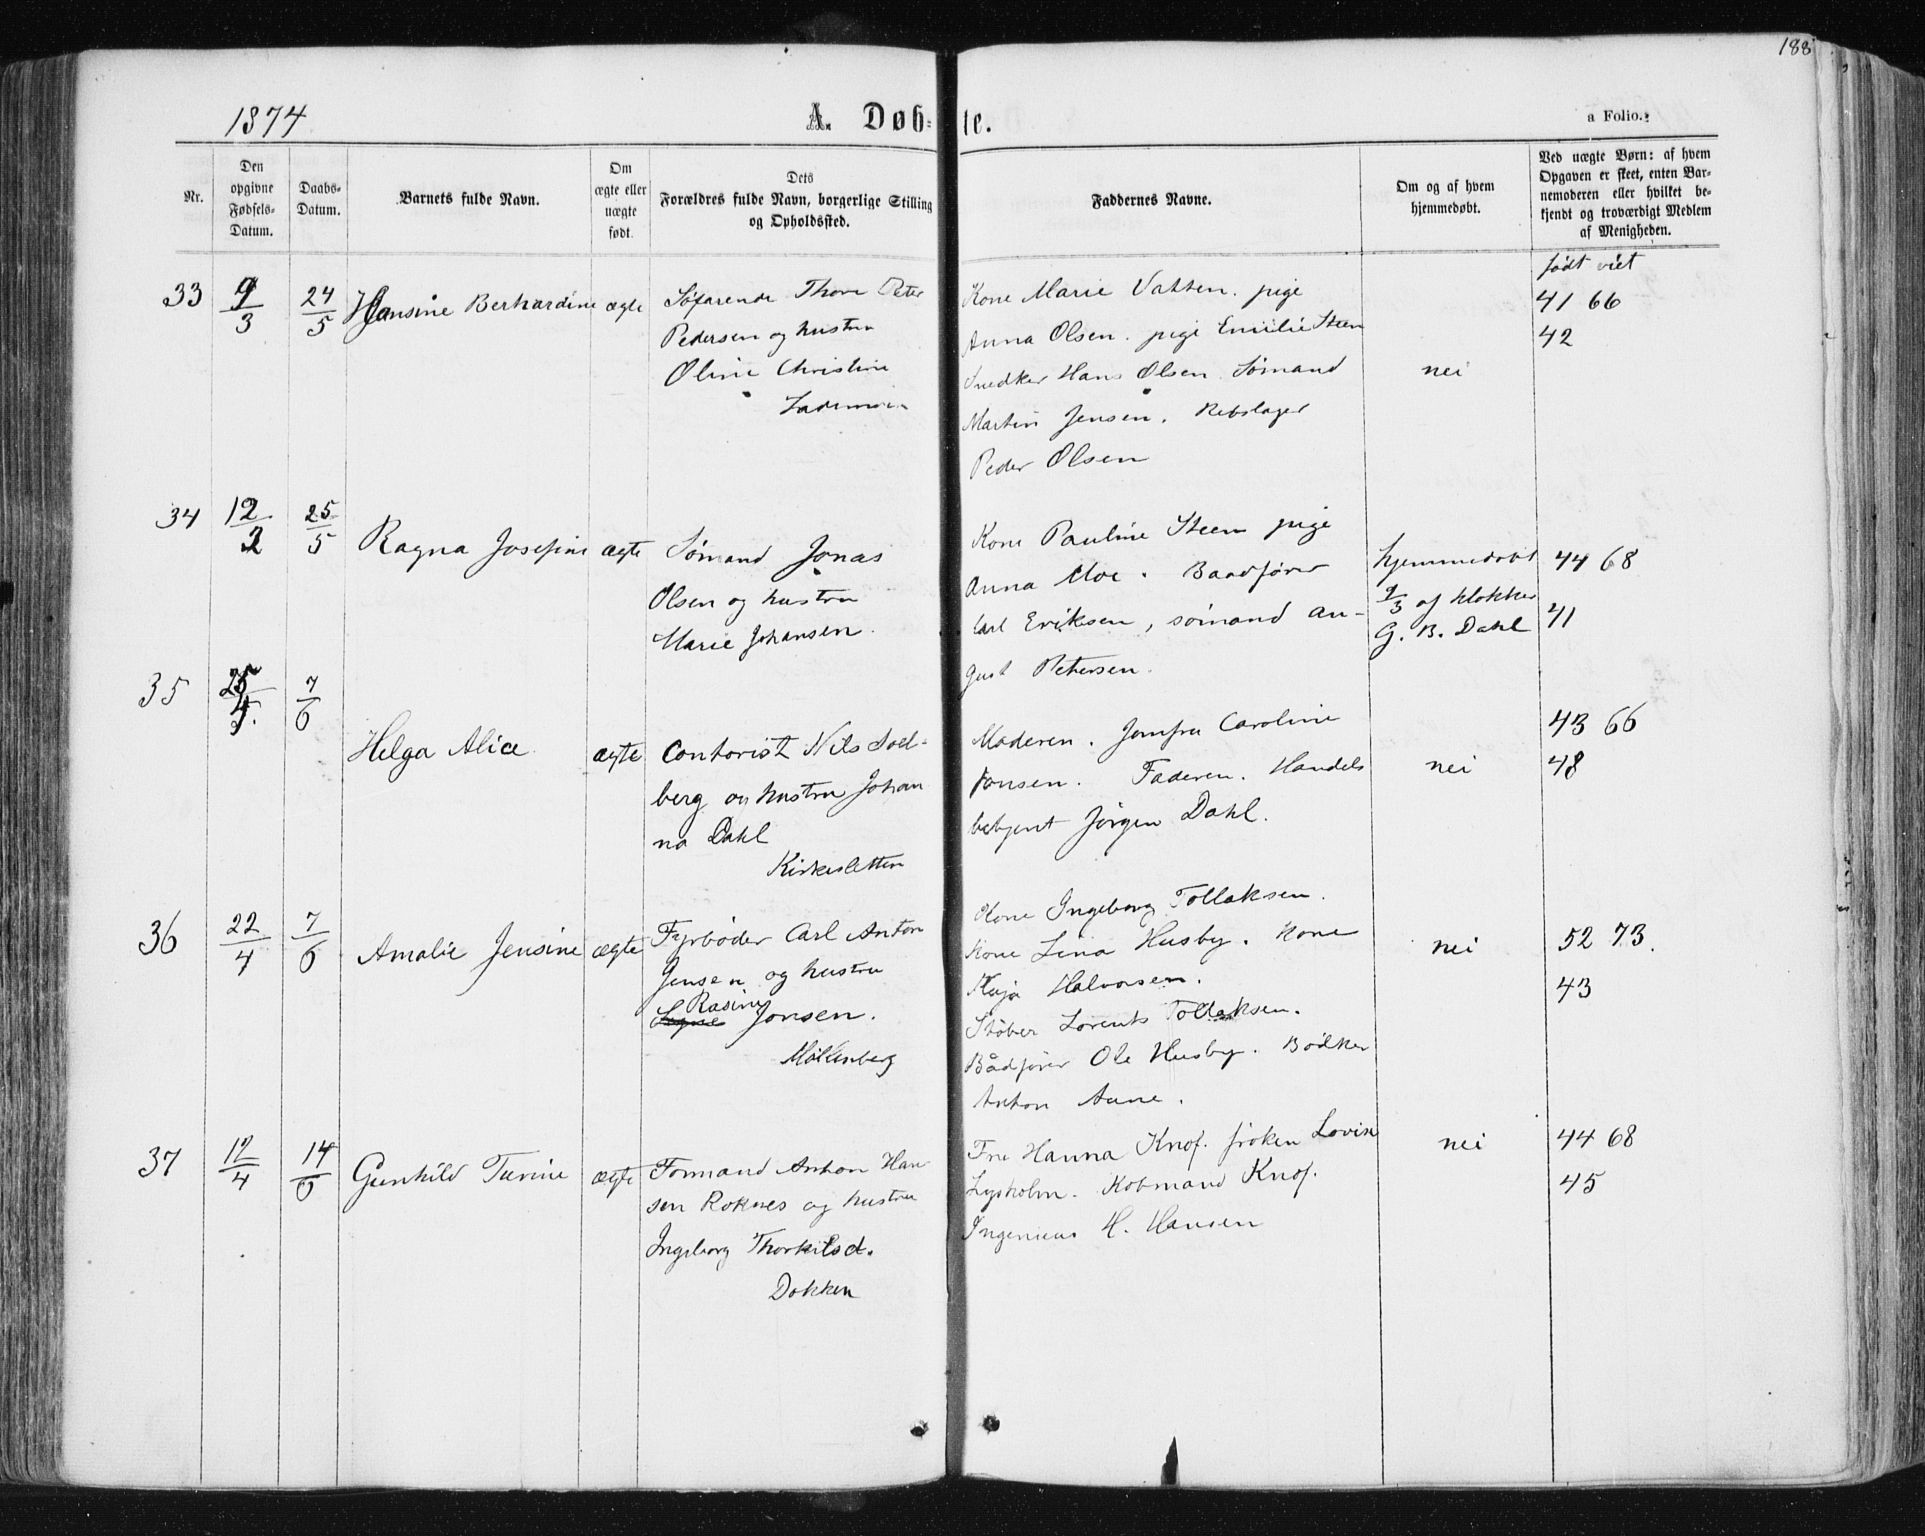 188
1874
A. Døb-
te.
a Folio.
Nr.
Den opgivne Fødsels-Datum.
Daabs-Datum.
Barnets fulde Navn.
Om ægte eller uægte født.
Dets Forældres fulde Navn, borgerlige Stilling og Opholdssted.
Faddernes Navne.
Om og af hvem hjemmedøbt.
Ved uægte Børn: af hvem Opgaven er skeet, enten Barnemoderen eller hvilket bekjendt og troværdigt Medlem af Menigheden.
33 9/3 24/5 Hansine Berhardine ægte
Søfarende Thore Peter
Pedersen og hustru
Oline Christine
Lademoen
Kone Marie Vatten. pige
Anna Olsen. pige Emilie Steen
Snedker Hans Olsen. Sømand
Martin Jensen. Rebslager
Peder Olsen
nei
født viet
41 66
42
34 12/2 25/5 Ragna Josefine ægte
Sømand Jonas
Olsen og hustru
Marie Johansen.
Kone Pauline Steen pige
Anna Moe. Baadfører
Carl Eriksen, sømand Au-
gust Petersen.
hjemmedøbt
9/3 af klokker
G. B. Dahl
44 68
41
35 25/4 7/6
Helga Alice. ægte
Contorist Nils Sol-
berg og hustru Johan
na Dahl
Kirkesletten
Moderen. Jomfru Caroline
Jonsen. Faderen. Handels
betjent Jørgen Dahl.
nei
43 66
48
36 22/4 7/6 Amalie Jensine ægte
Fyrbøder Carl Anton
Jensen og hustru
Rasine Jonsen.
Møllenberg
Kone Ingeborg Tollaksen.
Kone Lina Husby. Kone
Kaja Halvorsen.
Støber Lorents Tollaksen.
Bådfører Ole Husby. Bødker
Anton Aune.
nei
52 73.
43
37 12/4 14/6 Gunhild Turine ægte
Formand Anton Han
sen Roknes og hustru
Ingeborg Thorkilsd.
Dokken
Fru Hanna Knof. frøken Lovise
Lysholm. Kobmand Knof.
Ingenieur H. Hansen
nei
44 68
45